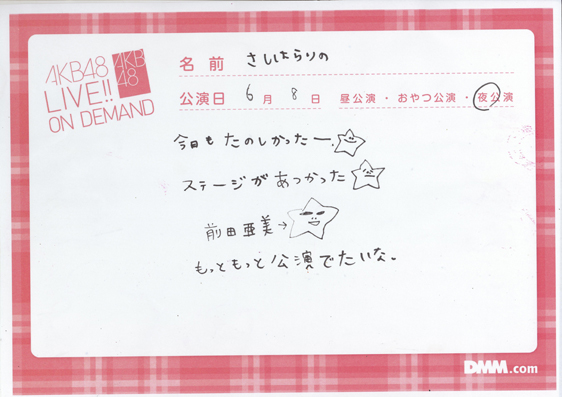 AKB48
LIVE!!
ON DEMAND
AKB
48
名前 さしはらりの
公演日 6月8日 昼公演・おやつ公演・夜公演
今日も たのしかったー.
ステージがあつかった
前田亜美→
もっともっと公演でたいな。
DMM.com